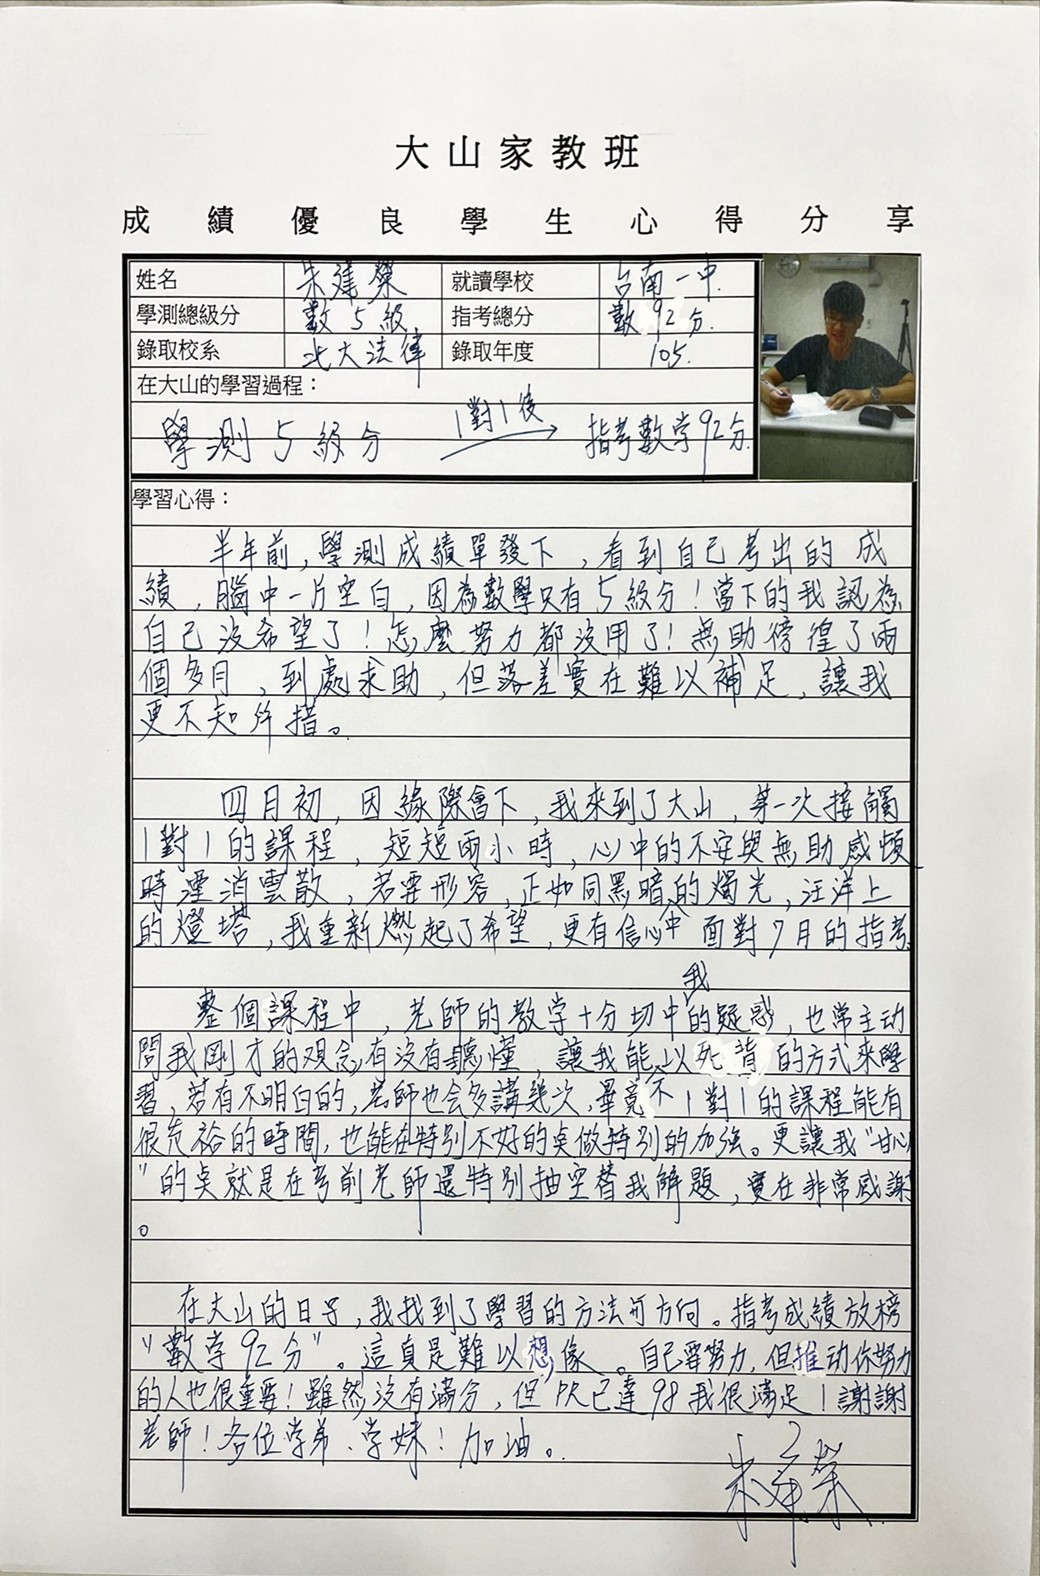 大山家教班
成績優良學生心得分享
姓名 朱建燊 就讀學校 台南一中.
學測總級分 數5級 指考總分 數92分.
錄取校系 北大法律 錄取年度 105.
在大山的學習過程：
學測5級分 1對1後 指考數学92分.
學習心得：
半年前,學測成績單發下,看到自己考出的成
績,腦中一片空白,因為數學只有5級分!當下的我認為
自己沒希望了!怎麼努力都沒用了!無助徬徨了兩
個多月,到處求助,但落差實在難以補足,讓我
更不知所措。
四月初,因緣際會下,我來到了大山,第一次接觸
1對1的課程,短短兩小時,心中的不安與無助感頓
時湮消雲散,若要形容,正如同黑暗的燭光,汪洋上
的燈塔,我重新燃起了希望,更有信心面對7月的指考。
我
整個課程中,老師的教学十分切中的疑惑,也常主动
問我剛才的观念有沒有聽懂,讓我能以死背的方式來學
習,若有不明白的,老師也会多講幾次,畢竟不1對1的課程能有
很充裕的時間,也能在特別不好的点做特別的加強。更讓我"甘心
"的点就是在考前老師還特別抽空替我解題,實在非常感謝
。
在大山的日子,我找到了學習的方法和方向。指考成績放榜
"數学92分"。這真是難以想像。自己要努力,但推动你努力
的人也很重要!雖然沒有滿分,但PR已達98我很滿足!謝謝
老師!各位学弟、学妹!加油。